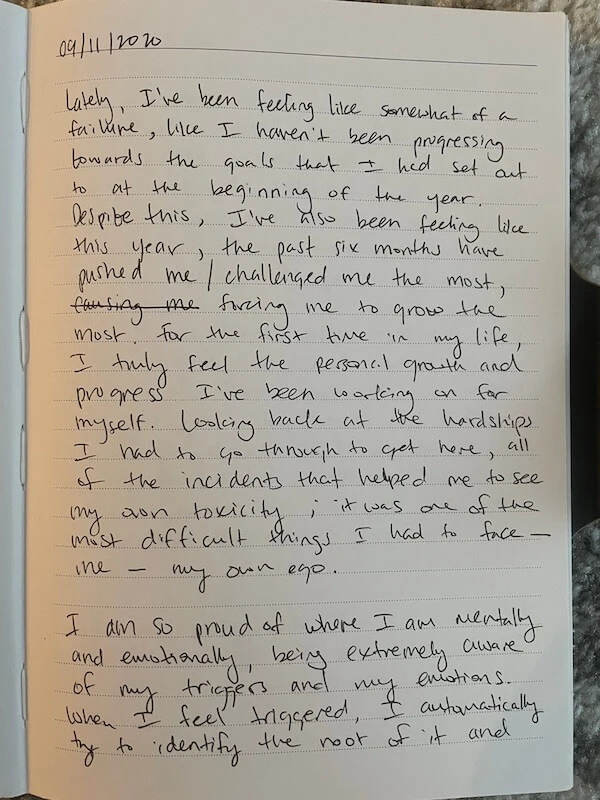 09/11/2020
lately, I've been feeling like somewhat of a
failure, like I haven't been progressing
towards the goals that I had set out
to at the beginning of the year.
Despite this, I've also been feeling like
this year, the past six months have
pushed me / challenged me the most,
causing me forcing me to grow the
most. For the first time in my life,
I truly feel the personal growth and
progress I've been working on for
myself. Looking back at the hardships
I had to go through to get here, all
of the incidents that helped me to see
my own toxicity ; it was one of the
most difficult things I had to face —
me — my own ego.
I am so proud of where I am mentally
and emotionally, being extremely aware
of my triggers and my emotions.
When I feel triggered, I automatically
try to identify the root of it and